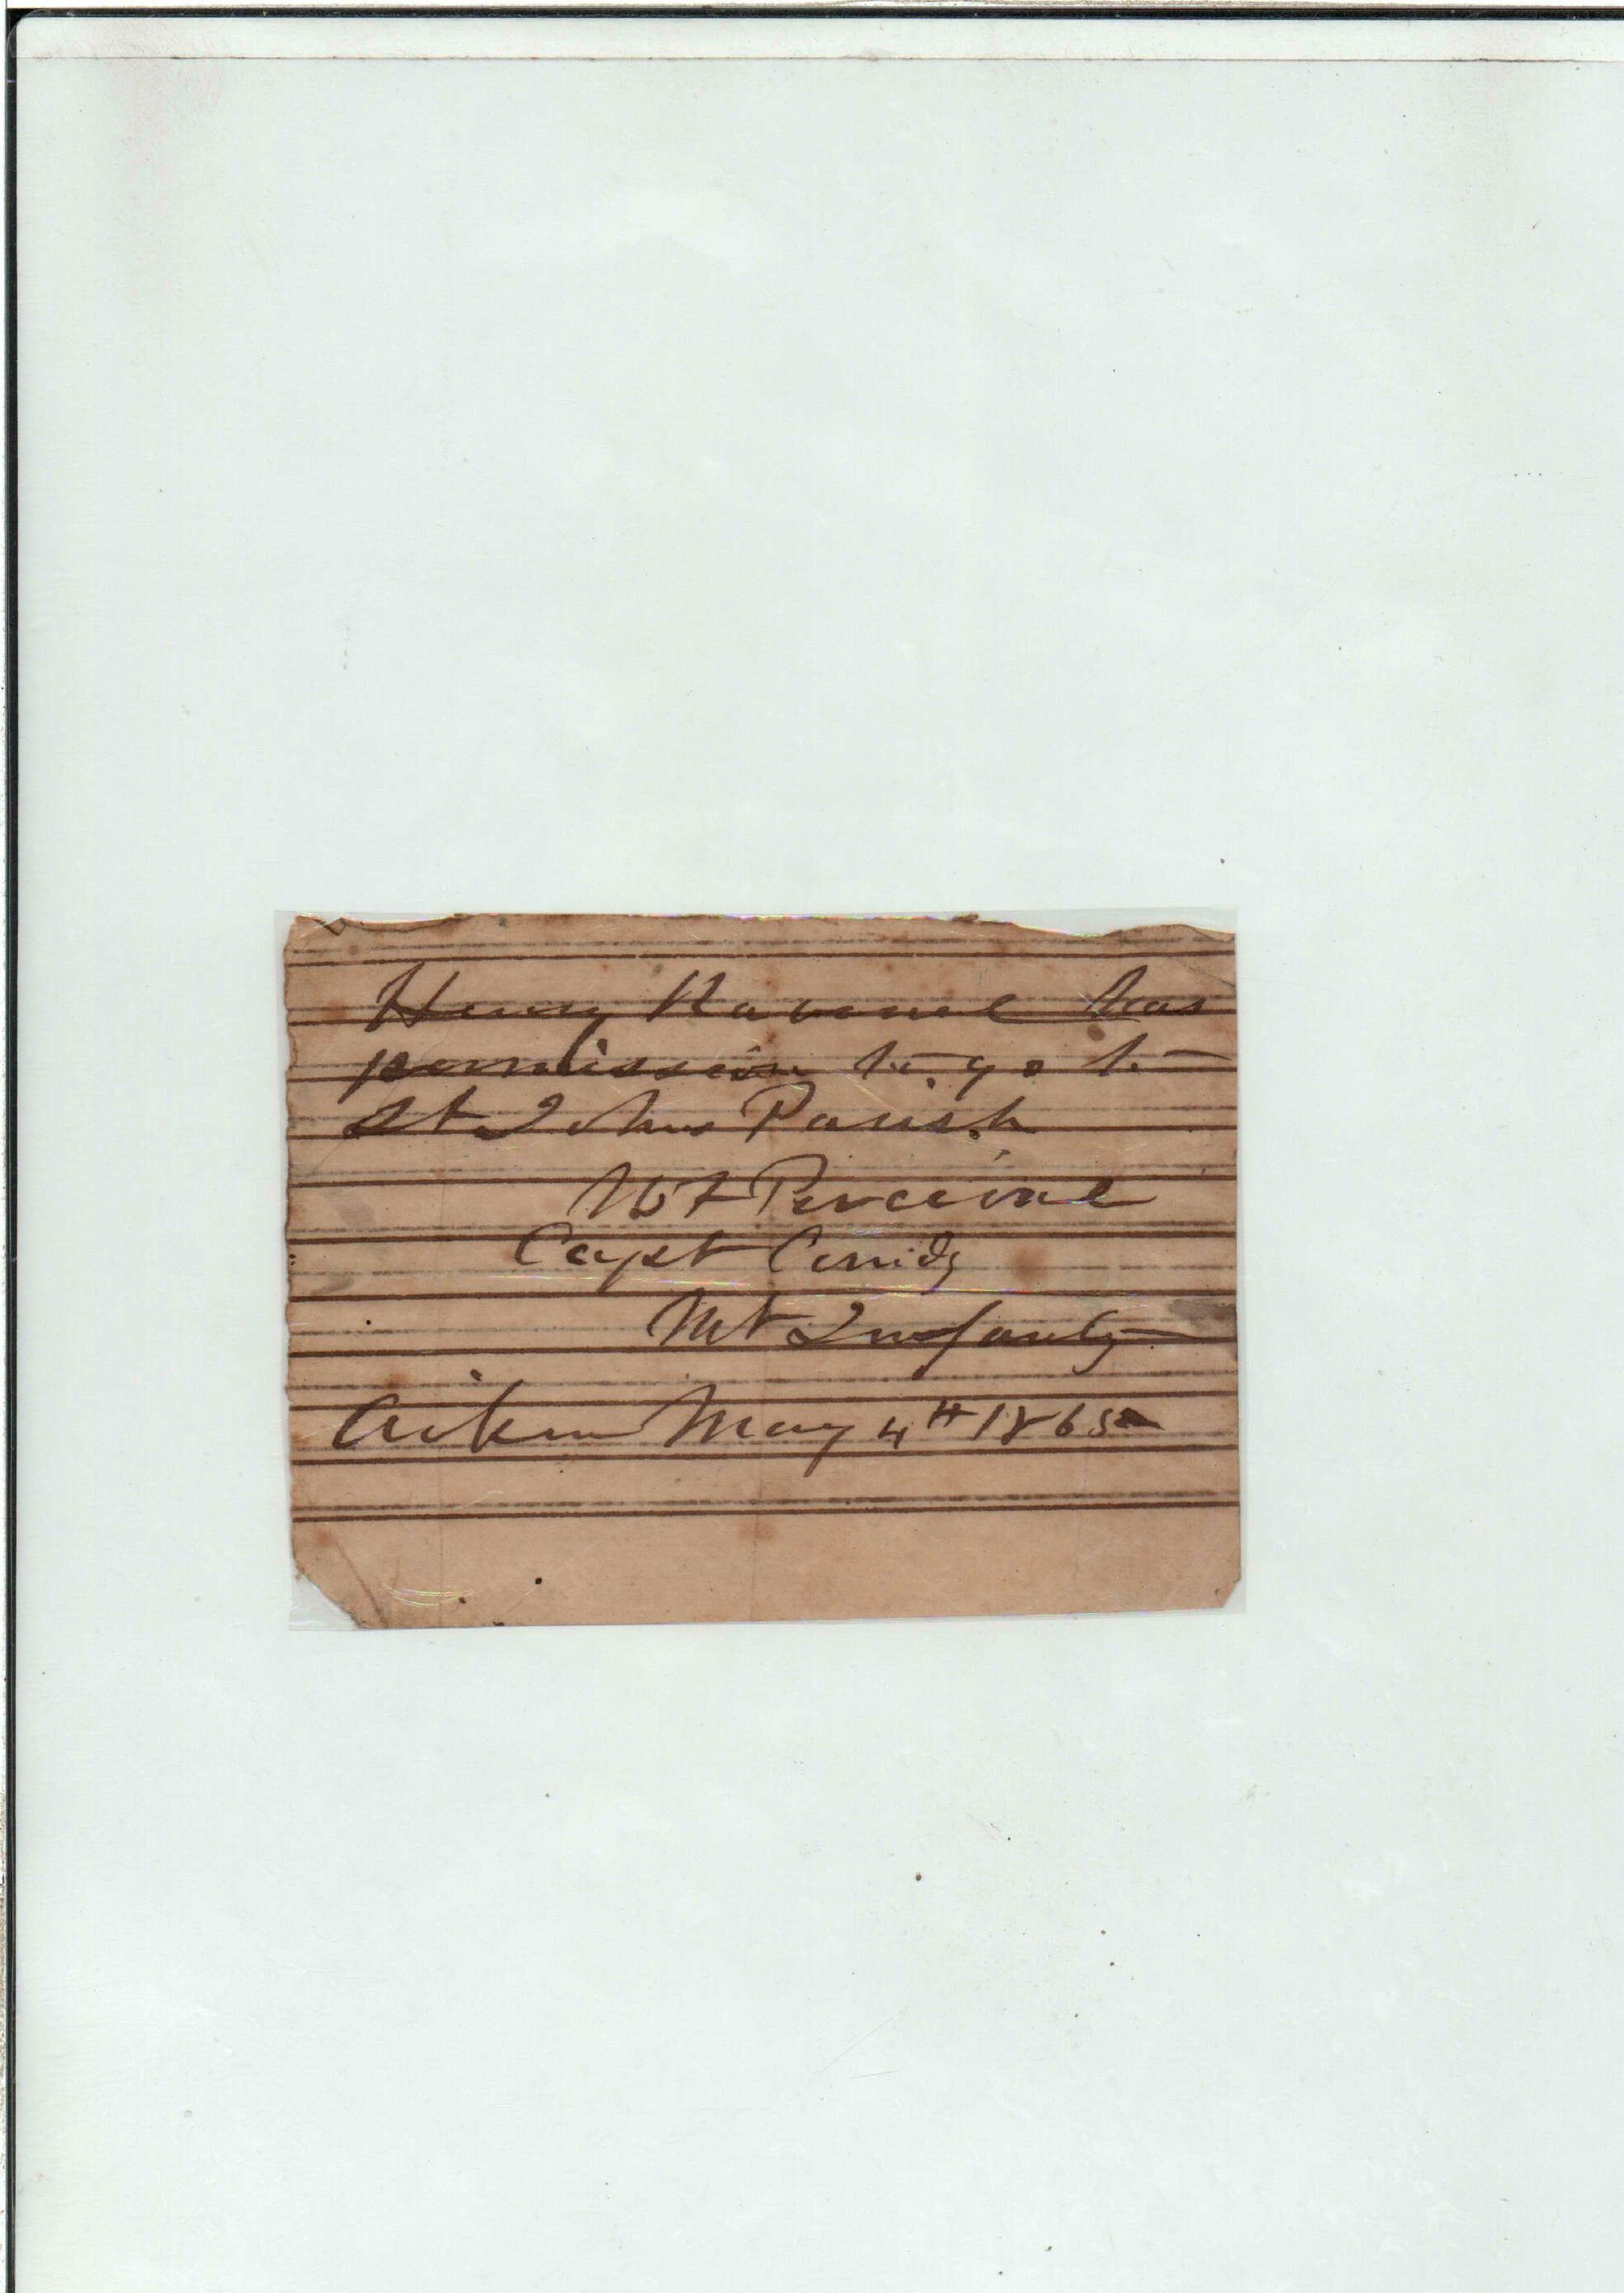 Henry Ravenel has
permission to go to
St Johns Parish
W F Percival
Capt Comdg
Mt Infantry
Aiken May 4th 1865